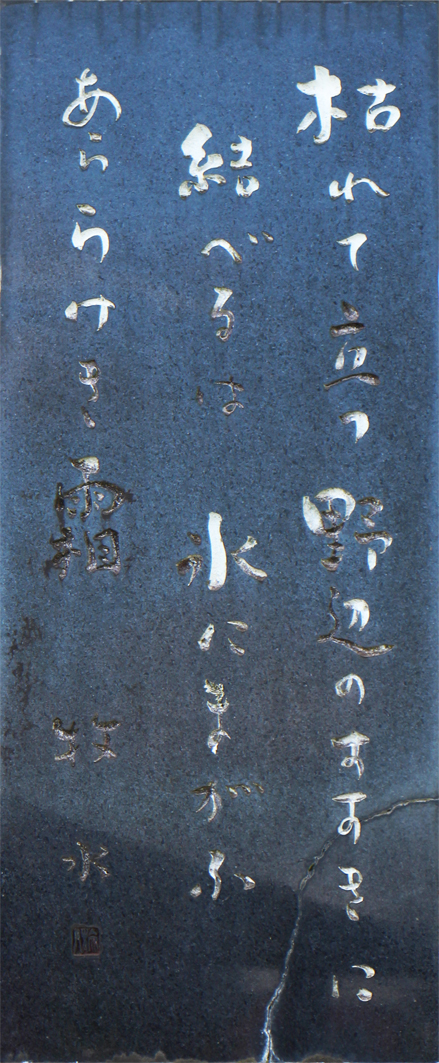 枯れて立つ野辺のすすきに
結べるは氷にまがふ
あららけき霜 牧水